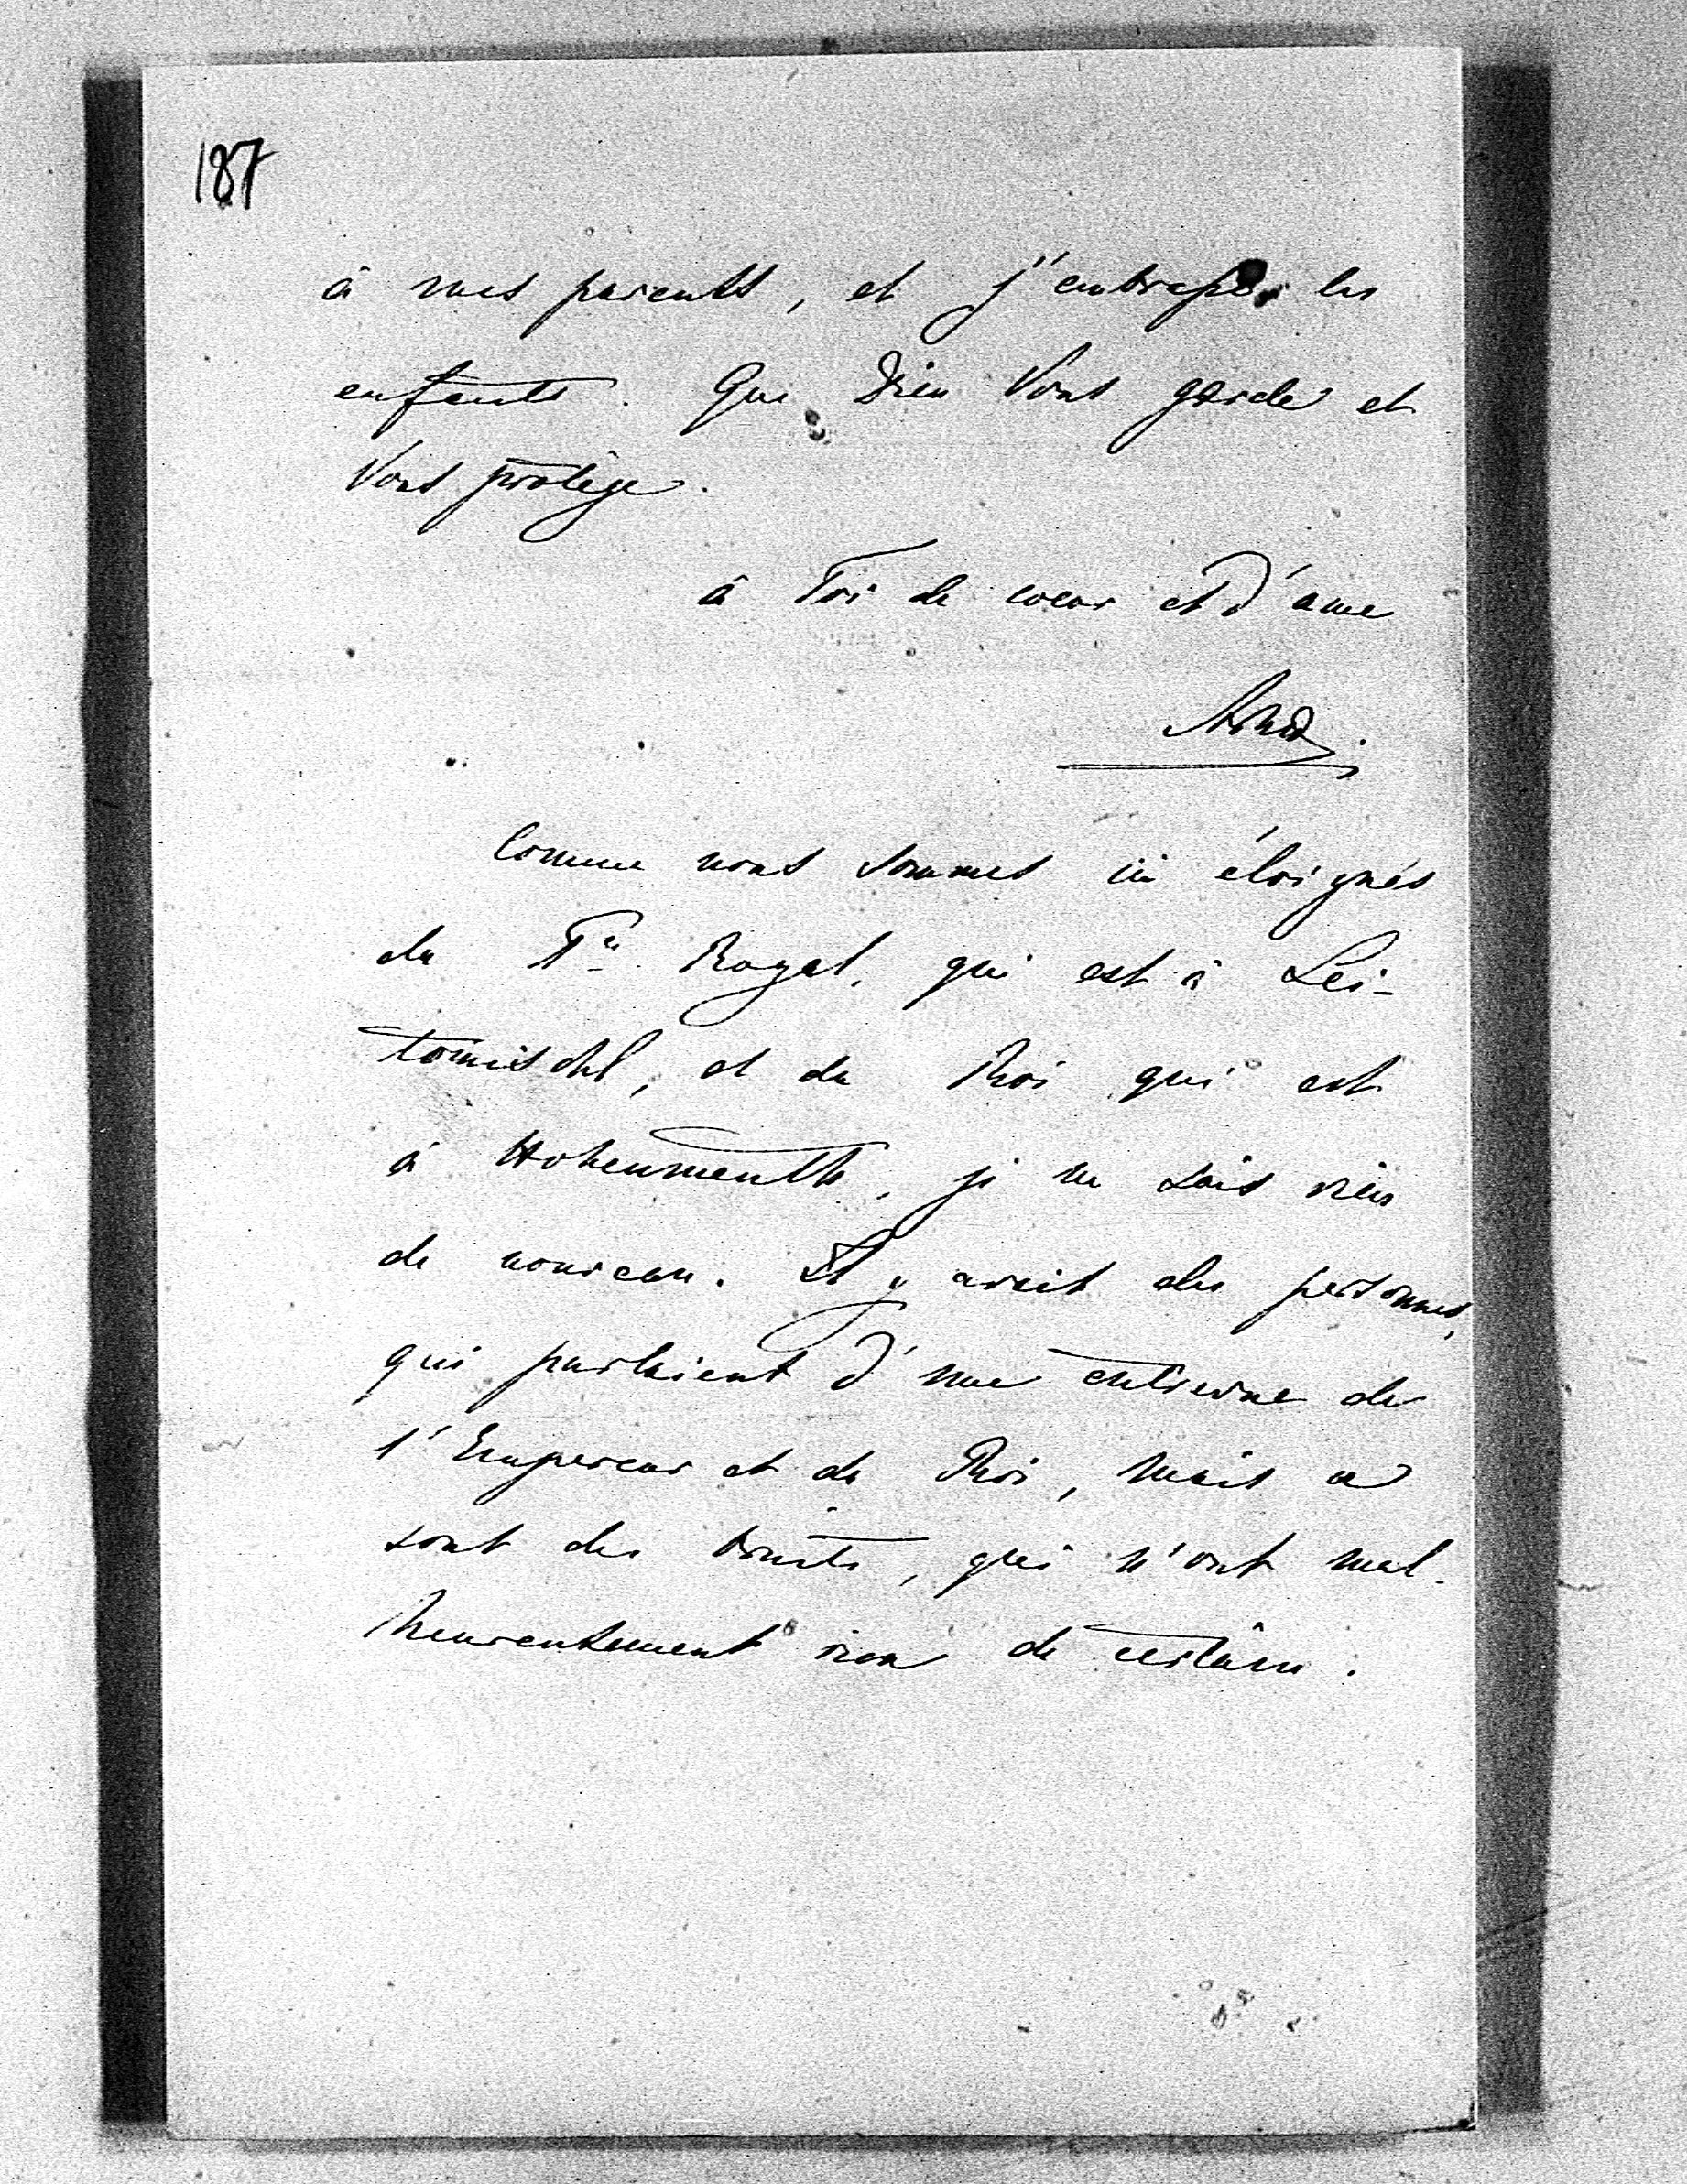 187
à mes parents, et j'embrasse les
enfants. Que Dieu Vous garde et
Vous protège.
à Toi de coeur et d'ame
Comme nous sommes ici éloignés
du Pce Royal, qui est à Lei-
tomischl, et du Roi qui est
à Hohenmauth, je ne sais rien
de nouveau. Il y avait des personnes,
qui parlaient d'une entrevue de
l'Empereur et du Roi, mais ce
sont des bruits, qui n'ont mal-
heureusement rien de certain.